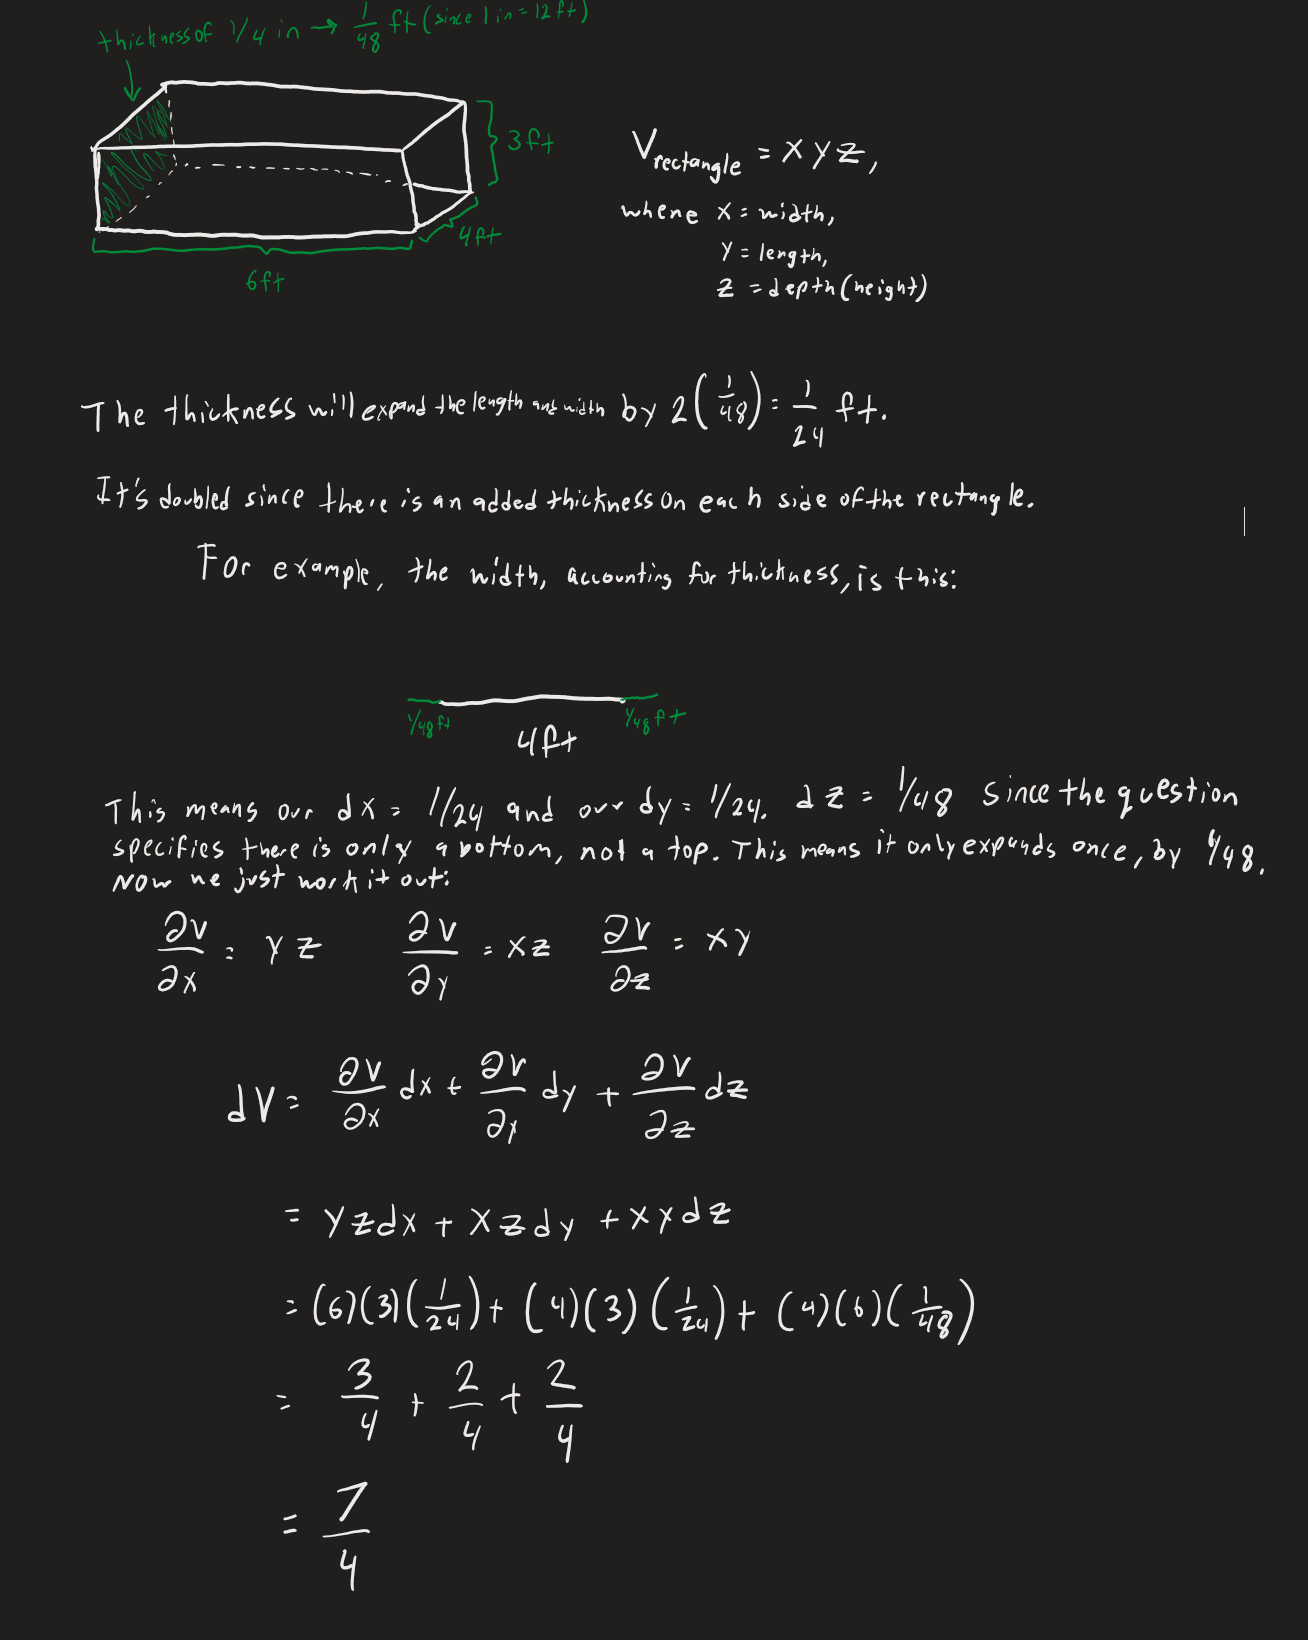 thickness of 1/4 in → 1/48 ft (since 1 in = 12 ft)
3 ft
4 ft
6 ft
V rectangle = x y z,
where x = width,
y = length,
z = depth (height)
The thickness will expand the length and width by 2(1/48) = 1/24 ft.
It's doubled since there is an added thickness on each side of the rectangle.
For example, the width, accounting for thickness, is this:
1/48 ft 1/48 ft
4 ft
This means our dx = 1/24 and our dy = 1/24. dz = 1/48 since the question
specifies there is only a bottom, not a top. This means it only expands once, by 1/48.
Now we just work it out:
∂V/∂x = yz ∂V/∂y = xz ∂V/∂z = xy
dV = ∂V/∂x dx + ∂V/∂y dy + ∂V/∂z dz
= yzdx + xzdy + xydz
= (6)(3)(1/24) + (4)(3)(1/24) + (4)(6)(1/48)
= 3/4 + 2/4 + 2/4
= 7/4